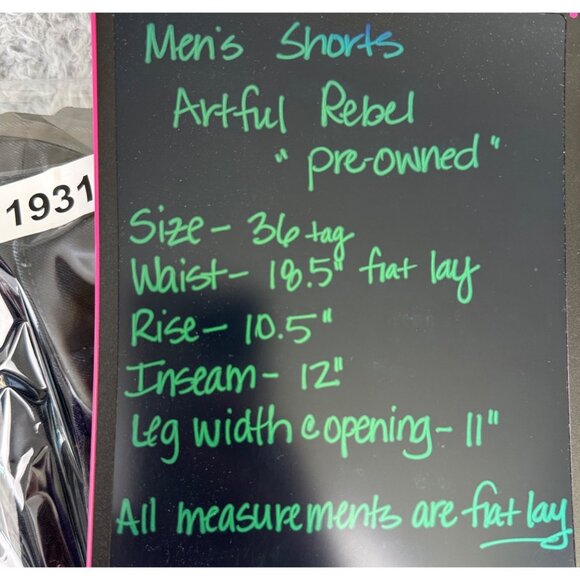 Men's Shorts
Artful Rebel
"pre-owned"
1931
Size - 36 tag
Waist - 18.5" flat lay
Rise - 10.5"
Inseam - 12"
Leg width @ opening - 11"
All measurements are flat lay